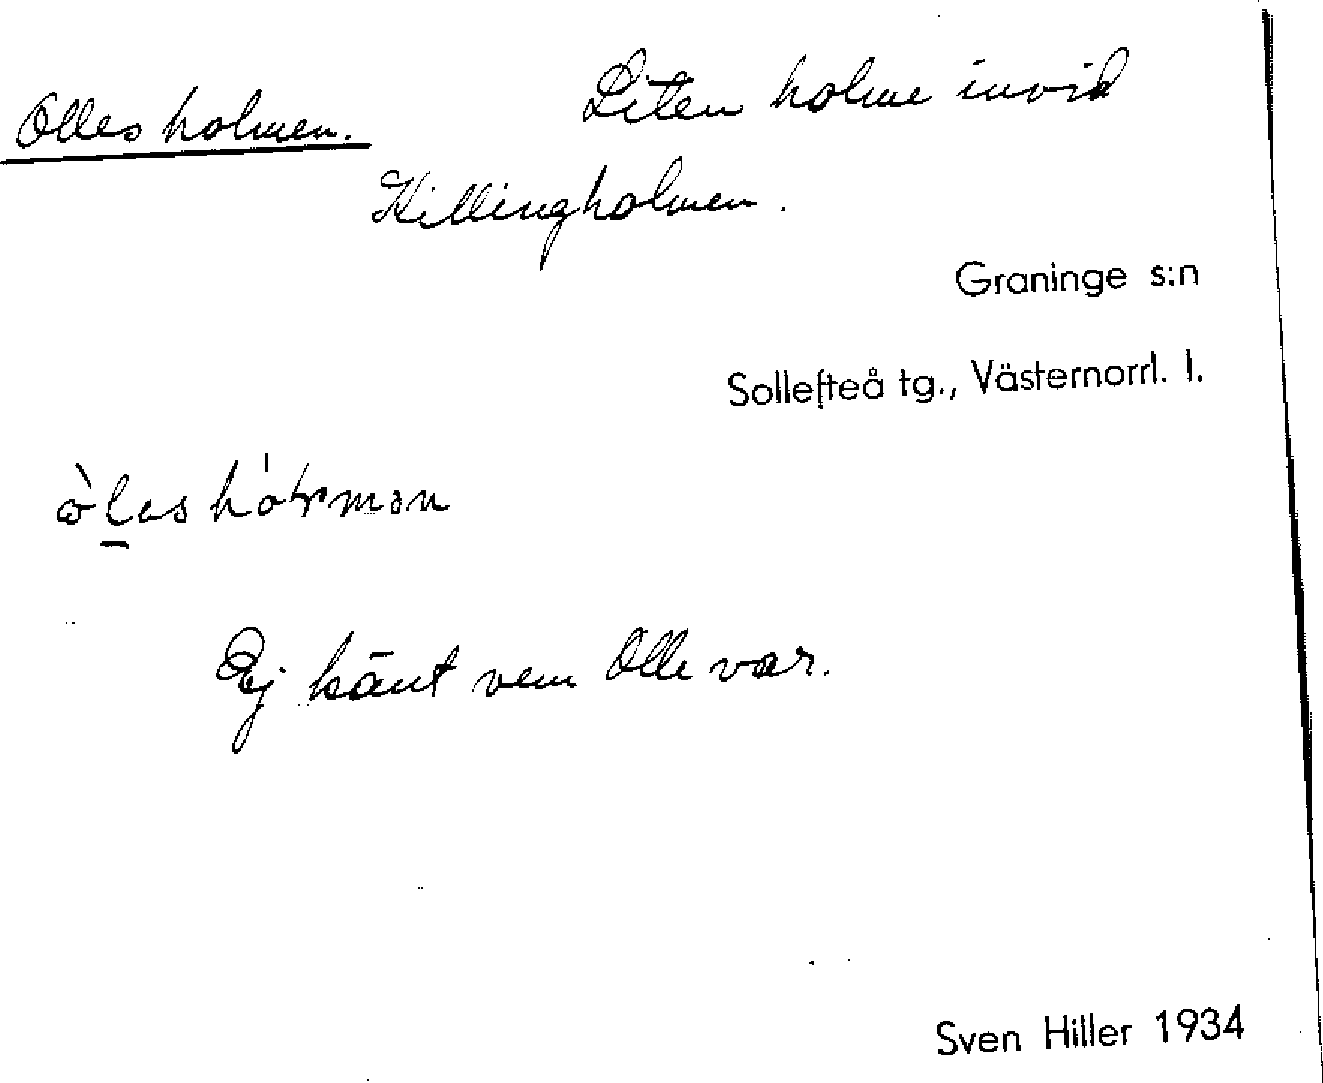 Olles holmen. Liten holme invid
Killingholmen.
Graninge s:n
Sollefteå tg., Västernorrl. l.
Ej känt vem Olle var.
Sven Hiller 1934